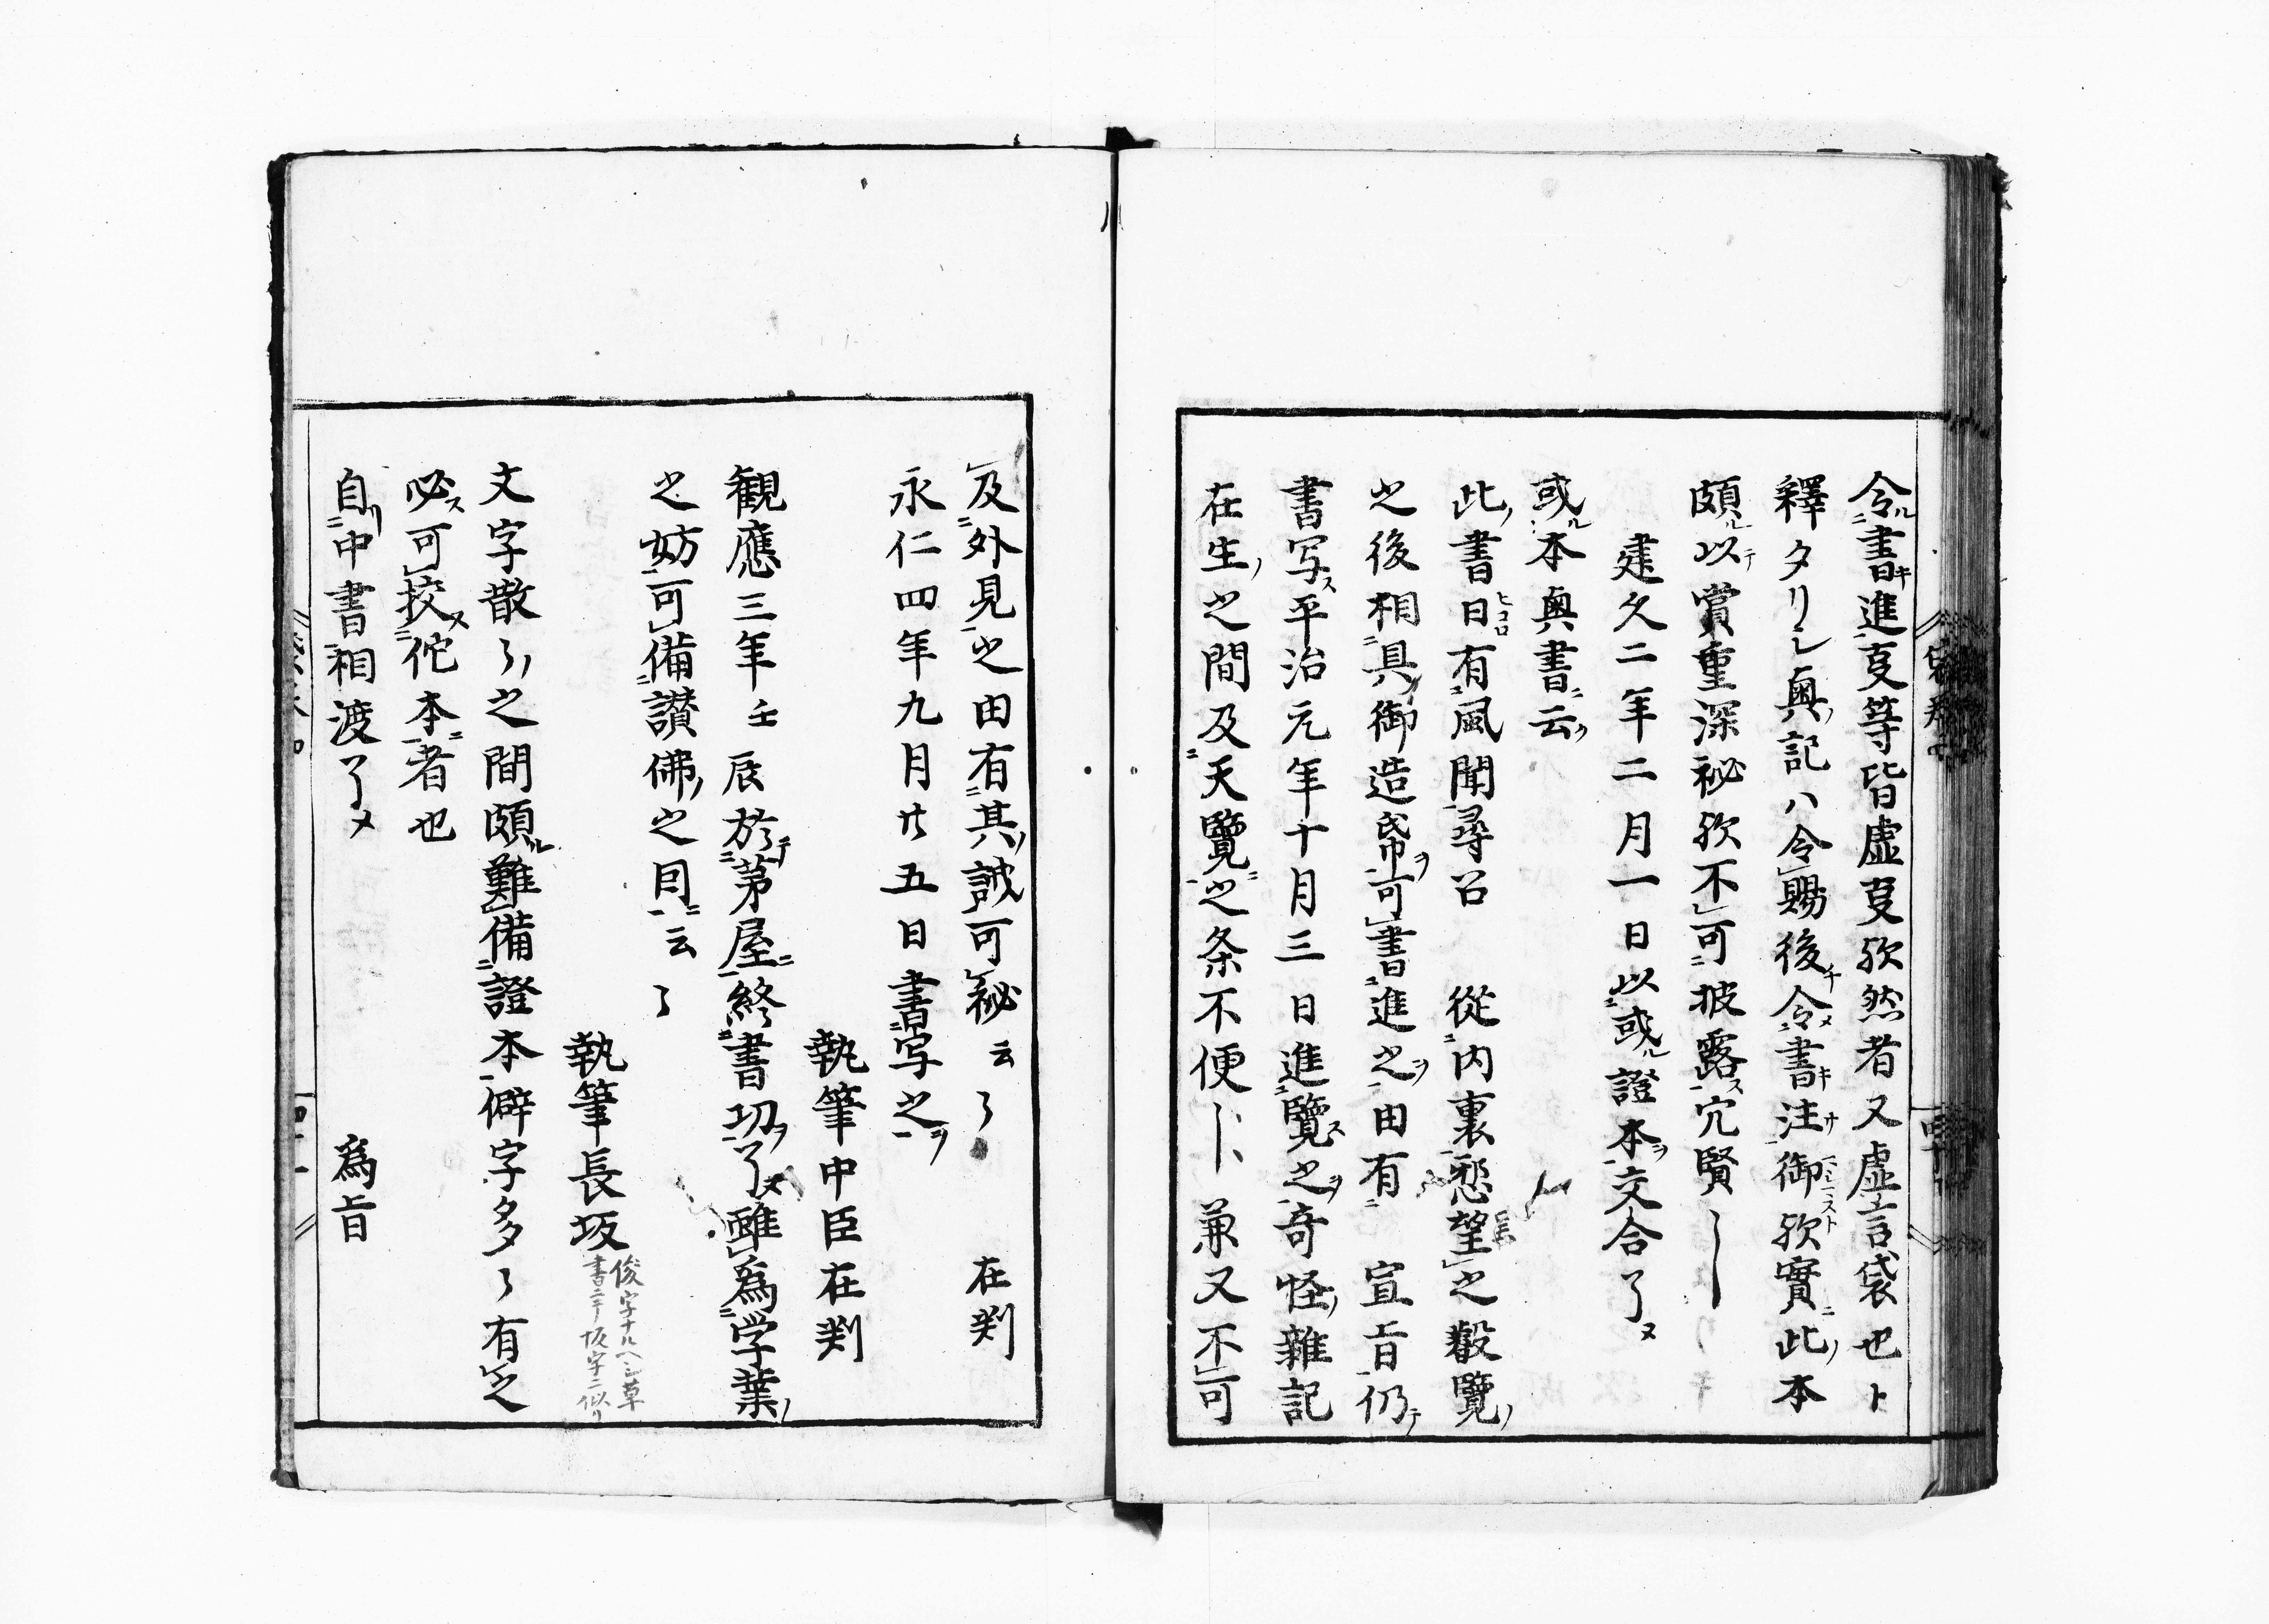 令書進㕝等皆虚㕝欤然者又虚言袋也ト
釋タリシ奥記ハ令賜後令書注御欤實此本
頗以賞重深秘欤不可披露穴賢〱
建久二年二月一日以或證本交合了
或本奥書云
此書日有風聞尋召 從内裏愁望之叡覽
之後相具御造帋可書進之由有 宣旨仍
書写平治元年十月三日進覽之奇怪雜記
在生之間及天覽之条不便〻〻兼又不可
及外見之由有其誠可秘云〻 在判
永仁四年九月廿五日書写之
執筆中臣在判
観應三年壬辰於茅屋終書切了雖為学業
之妨可備讃佛之因云〻
執筆長坂
俊字ナルヘシ草
書ニテ坂字ニ似リ
文字散〻之間頗難備證本僻字多〻有之
必可挍佗本者也
自中書相渡了 為旨